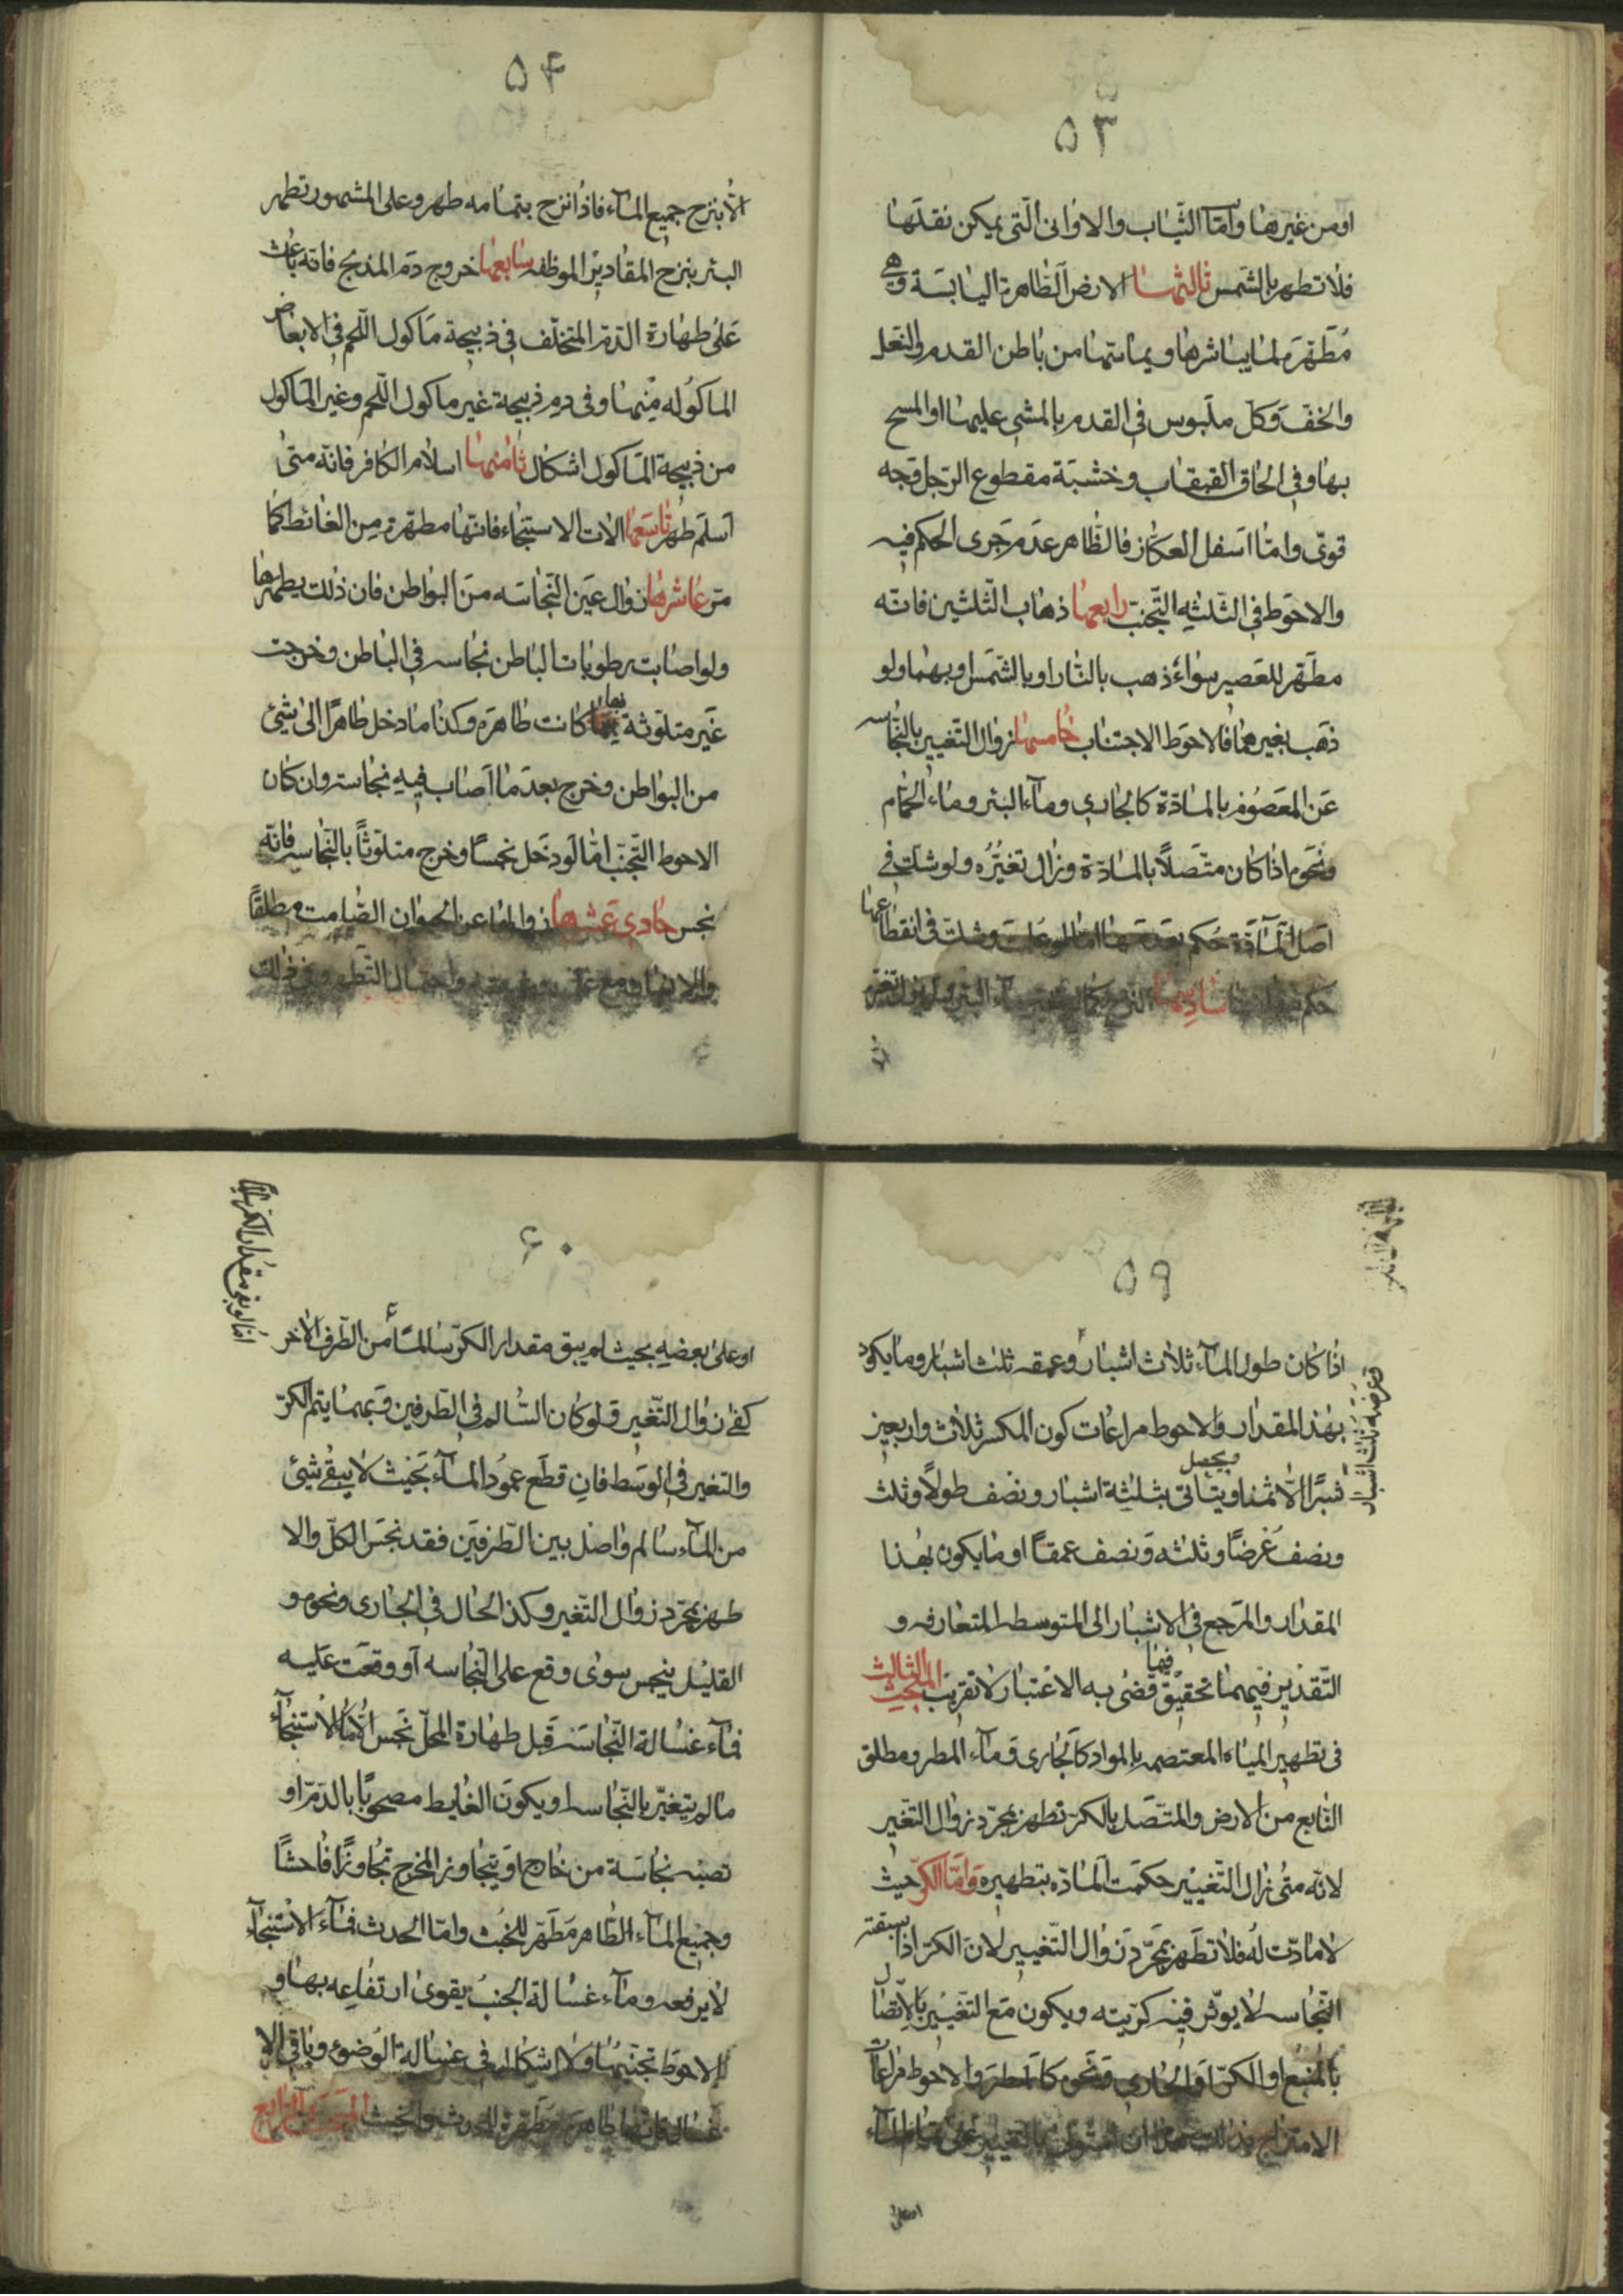 ۵۳
او من غيرها وامّا الثّياب والاوانى الّتى يمكن نقلها
فلا تطهر بالشّمس ثالثها الارض الطّاهرة اليابسة وهى
مطهّرة لما يباشرها ويماسّها من باطن القدم والنّعل
والخفّ وكلّ ملبوس فى القدم بالمشى عليها او المسح
بها وفى الحاق القبقاب وخشبة مقطوع الرّجل وجه
قوىّ وامّا اسفل العكّاز فالظّاهر عدم جرى الحكم فيه
والاحوط فى الثّلثه التّجنّب رابعها ذهاب الثّلثين فانّه
مطهّر للعصير سواء ذهب بالنّار او بالشّمس او بهما ولو
ذهب بغيرهما فالاحوط الاجتناب خامسها زوال التّغيير بالنّجاسه
عن المعصوم بالمادّة كالجارى وماء البئر وماء الحمّام
ونحوها اذا كان متّصلاً بالمادّة وزال تغيّره ولو شكّ فى
اصل المادّة حكم بعدمها امّا لو علمت وشكّ فى انقطاعها
حكم سادسها
۵۴
الاّ بنزح جميع الماء فاذا نزح بتمامه طهر وعلى المشهور تطهر
البئر بنزح المقادير الموظفه سابعها خروج دم المذبح فانّه باعث
على طهارة الدّم المتخلّف فى ذبيحة ماكول اللّحم فى الابعاض
الماكوله منها وفى دم ذبيحة غير ماكول اللّحم وغير الماكول
من ذبيحة الماكول اشكال ثامنها اسلام الكافر فانّه متى
اسلم طهر تاسعها الات الاستنجاء فانّها مطهّرة من الغائط كما
مرّ عاشرها زوال عين النّجاسه من البواطن فان ذلك يطهّرها
ولو اصابت رطوبات الباطن نجاسه فى الباطن وخرجت
غير متلوّثة بها كانت طاهرة وكذا ما دخل طاهرًا الى شىء
من البواطن وخرج بعد ما اصاب فيه نجاسة وان كان
الاحوط التّجنّب امّا لو دخل نجسًا وخرج متلوّثًا بالنّجاسه فانّه
نجس حادى عشرها زوالها عن الحيوان الصّامت مطلقًا
۵۹
اذا كان طول الماء ثلاث اشبار وعمقه ثلث اشبار وما يكون
وعرضه ثلث اشبار
بهذا المقدار والاحوط مراعات كون المكسر ثلاث واربعين
شبرًا الاّ ثمنا ويتأتى ويحصل بثلثة اشبار ونصف طولاً وثلث
ونصف عرضًا وثلثه ونصف عمقًا او ما يكون بهذا
المقدار والمرجع فى الاشبار الى المتوسطه المتعارفه و
التّقدير فيهما تحقيق فيما قضى به الاعتبار لا تقريب المبحث الثالث
فى تطهير المياه المعتصمه بالمواد كالجارى وماء المطر ومطلق
النّابع من الارض والمتّصل بالكرّ تطهر بمجرّد زوال التّغير
لانّه متى زال التّغيير حكمت المادّه بتطهيره وامّا الكرّ حيث
لا مادّت له فلا تطهر بمجرّد زوال التّغيير لانّ الكرّ اذا سبقته
النّجاسه لا يوثّر فيه كرّيته ويكون مع التّغيير بالاتّصال
بالمنبع او الكرّ او الجارى ونحوه كالمطر والاحوط مراعات
او على
۶۰
امّا لو بقى مقدار الكرّ
او على بعضه بحيث لم يبق مقدار الكرّ سالمًا من الطّرف الاخر
كفى زوال التّغير ولو كان السّالم فى الطّرفين وبهما يتم الكرّ
والتغير فى الوسط فان قطع عمود الماء بحيث لا يبقى شىء
من الماء سالم واصل بين الطّرفين فقد نجس الكلّ والا
طهر بمجرّد زوال التّغير وكذا الحال فى الجارى ونحوه و
القليل ينجس سوى وقع على النّجاسه او وقعت عليه
فماء غسالة النّجاسه قبل طهارة المحلّ نجس الاّ ماء الاستنجاء
ما لم يتغيّر بالنّجاسه او يكون الغايط مصحوبًا بالدّم او
تصبه نجاسة من خارج او يتجاوز المخرج تجاوزًا فاحشًا
وجميع الماء الطّاهر مطهّر للخبث وامّا الحدث فماء الاستنجاء
لا يرفعه وماء غسالة الجنب يقوى ارتفاعه بها و
الاحوط تجنّبها ولا اشكال فى غسالة الوضوء وباقى الا
غسال فانّها طاهرة مطهّرة للحدث والخبث المبحث الرّابع